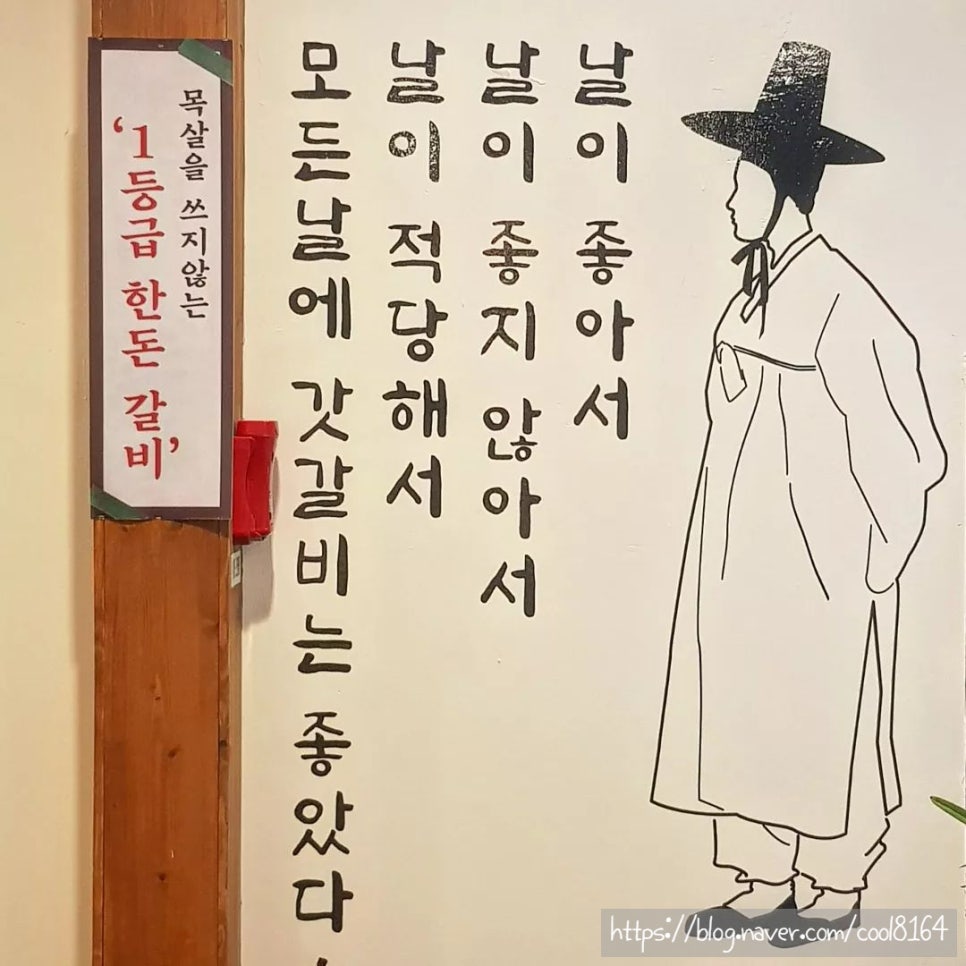 날이 좋아서
날이 좋지 않아서
날이 적당해서
모든날에 갓갈비는 좋았다
목살을 쓰지않는
'1등급 한돈 갈비'
https://blog.naver.com/cool8164